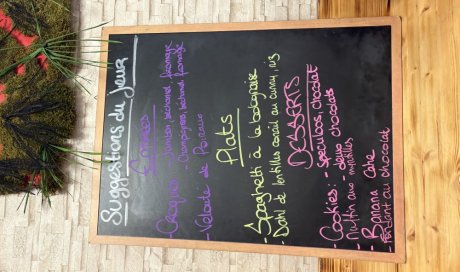 Suggestions du jour
Entrées
Croques : - Jambon, béchamel, fromage
- Champignons, béchamel, fromage
- Velouté de Poireaux
Plats
- Spaghetti à la bolognaise
- Dahl de lentilles corail au curry, riz
DESSERTS
Cookies : - Speculoos, chocolat
- deux chocolats
- Muffin aux myrtilles
- Banana cake
- Fondant au chocolat